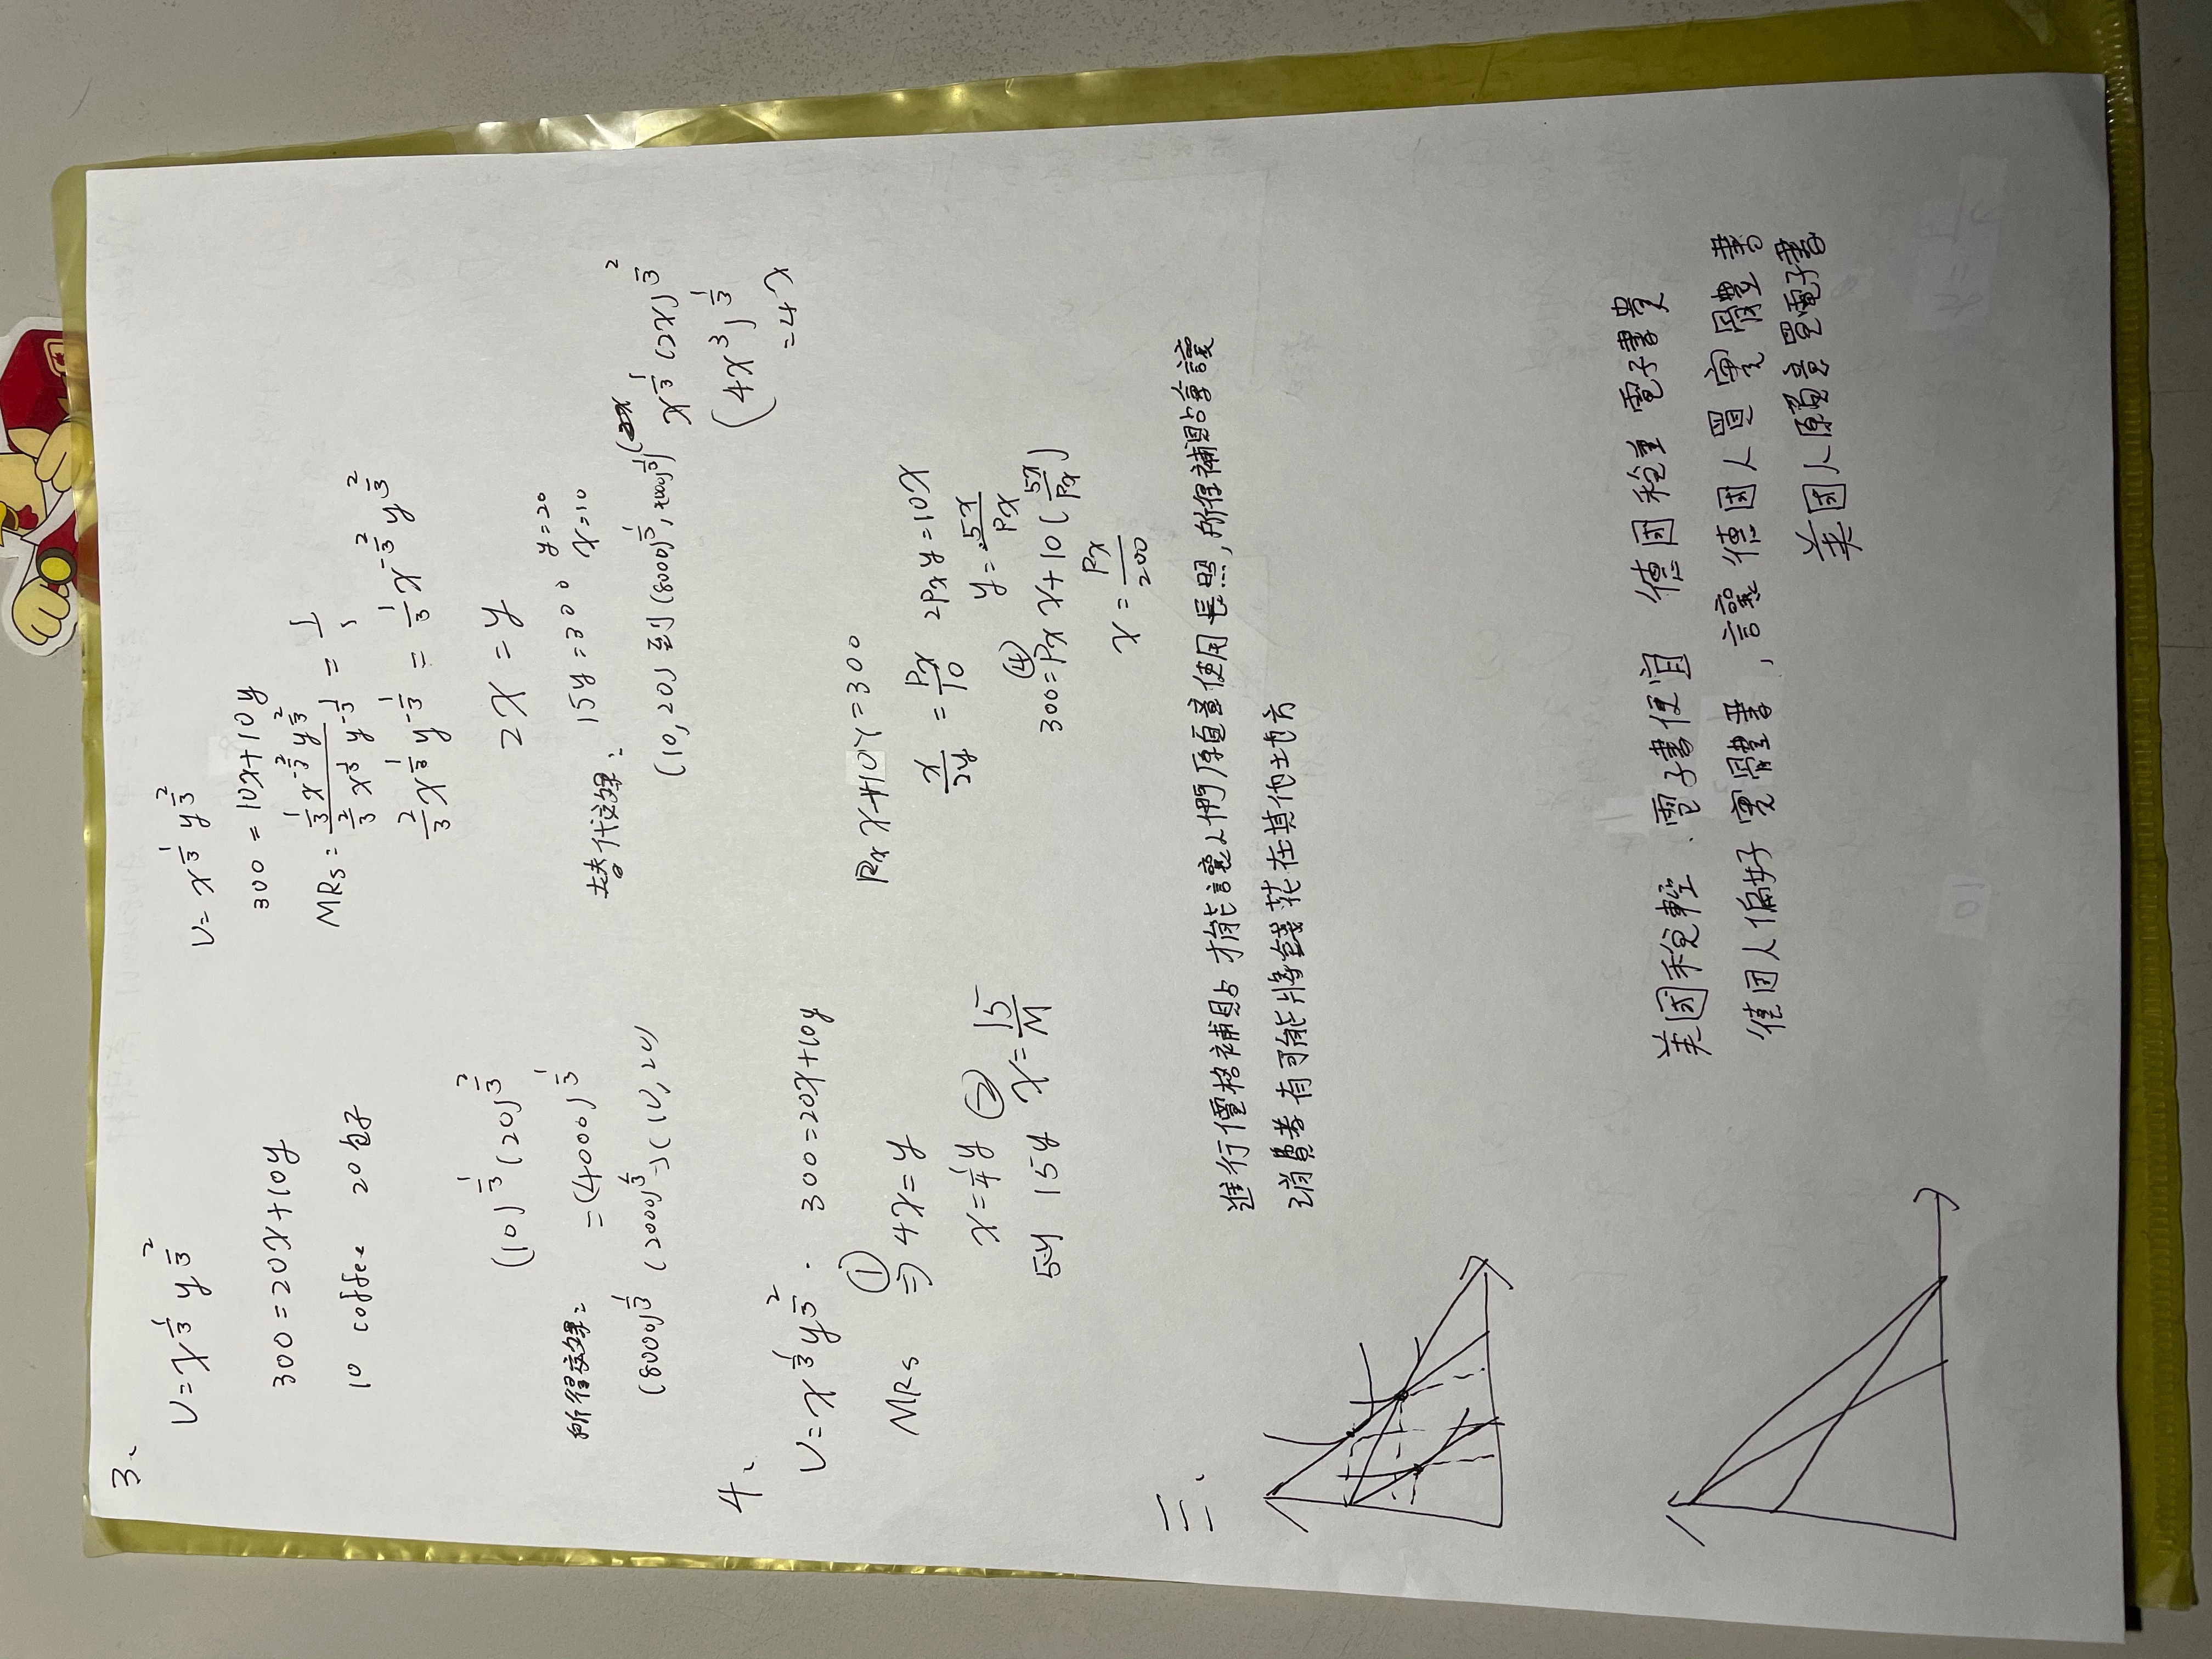 3、
U=x^{1/3} y^{2/3}
300=20x+10y
10 coffee 20包子
(10)^{1/3} (20)^{2/3}
=(4000)^{1/3}
所得效果:
(8000)^{1/3} (2000)^{1/3}→(10,20)
U=x^{1/3} y^{2/3}
300=10x+10y
MRs=\frac{\frac{1}{3}x^{-2/3}y^{2/3}}{\frac{2}{3}x^{1/3}y^{-1/3}}=\frac{1}{1}
\frac{2}{3}x^{1/3}y^{-1/3}=\frac{1}{3}x^{-2/3}y^{2/3}
2x=y
15y=300 y=20
x=10
替代效果:
(10,20)到(8000)^{1/3}, 2000)^{1/3})
x^{1/3}(2x)^{2/3}
(4x^3)^{1/3}
=4x
4、
U=x^{1/3}y^{2/3}. 300=20x+10y
①
MRs ⇒ 4x=y
x=\frac{1}{4}y ② x=\frac{15}{M}
5y 15y
Px x+10Y=300
\frac{x}{2y}=\frac{Px}{10} 2Px y=10x
y=\frac{5x}{Px}
④
300=Px x+10(\frac{5x}{Px})
x=\frac{Px}{200}
三、
進行價格補貼才能讓人們願意使用長照,所得補貼會讓
消費者有可能將錢花在其他地方
美国稅輕、電子書便宜 德国稅重電子書貴
德国人偏好實體書,讓德国人買實體書
美国人願意買電子書